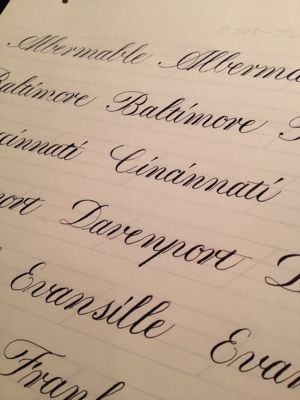 Albermable Alberma
Baltimore Baltimore B
cinnati Cincinnati
port Davenport D
Evansille Evan
Frank